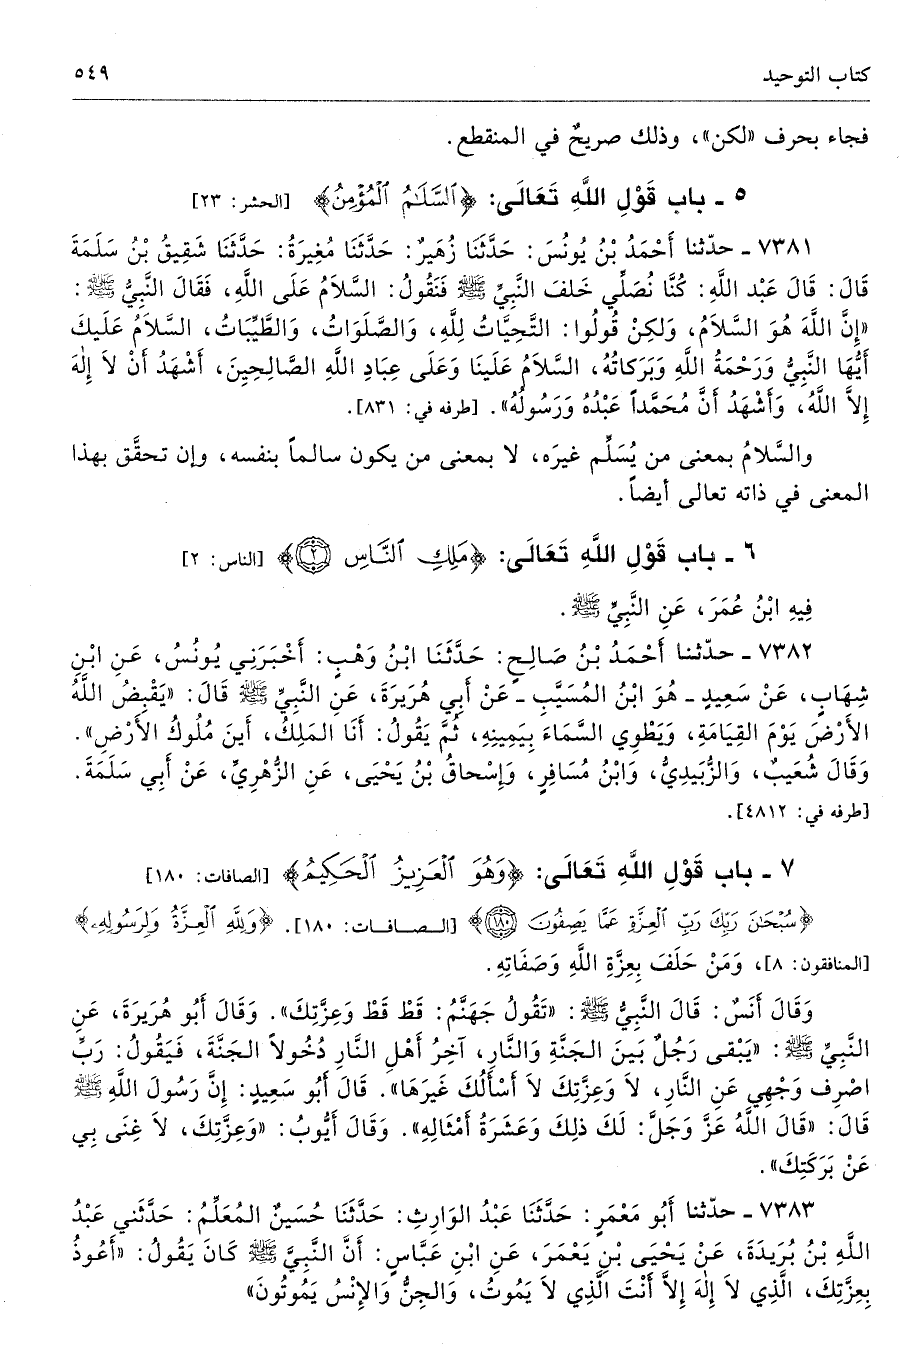 كتاب التوحيد ٥٤٩
فجاء بحرف «لكن»، وذلك صريحٌ في المنقطع.
٥ ـ باب قَوْلِ اللَّهِ تَعَالَى: ﴿ٱلسَّلَٰمُ ٱلْمُؤْمِنُ﴾ [الحشر: ٢٣]
٧٣٨١ ـ حدّثنا أَحْمَدُ بْنُ يُونُسَ: حَدَّثَنَا زُهَيرٌ: حَدَّثَنَا مُغِيرَةُ: حَدَّثَنَا شَقِيقُ بْنُ سَلَمَةَ
قَالَ: قَالَ عَبْد اللَّهِ: كُنَّا نُصَلِّي خَلفَ النَّبِيِّ ﷺ فَنَقُولُ: السَّلاَمُ عَلَى اللَّهِ، فَقَالَ النَّبِيُّ ﷺ:
«إِنَّ اللَّهَ هُوَ السَّلاَمُ، وَلكِنْ قُولُوا: التَّحِيَّاتُ لِلَّهِ، وَالصَّلَوَاتُ، وَالطَّيِّبَاتُ، السَّلاَمُ عَلَيكَ
أَيُّهَا النَّبِيُّ وَرَحْمَةُ اللَّهِ وَبَرَكاتُهُ، السَّلاَمُ عَلَينَا وَعَلَى عِبَادِ اللَّهِ الصَّالِحِينَ، أَشْهَدُ أَنْ لاَ إِلٰهَ
إِلاَّ اللَّهُ، وَأَشْهَدُ أَنَّ مُحَمَّداً عَبْدُهُ وَرَسُولُهُ». [طرفه في: ٨٣١].
والسَّلامُ بمعنى من يُسَلِّم غيرَه، لا بمعنى من يكون سالماً بنفسه، وإن تحقَّق بهذا
المعنى في ذاته تعالى أيضاً.
٦ ـ باب قَوْلِ اللَّهِ تَعَالَى: ﴿مَلِكِ ٱلنَّاسِ ۝٢﴾ [الناس: ٢]
فِيهِ ابْنُ عُمَرَ، عَنِ النَّبِيِّ ﷺ.
٧٣٨٢ ـ حدّثنا أَحْمَدُ بْنُ صَالِحٍ: حَدَّثَنَا ابْنُ وَهْبٍ: أَخْبَرَنِي يُونُسُ، عَنِ ابْنِ
شِهَابٍ، عَنْ سَعِيدٍ ـ هُوَ ابْنُ المُسَيَّبِ ـ عَنْ أَبِي هُرَيرَةَ، عَنِ النَّبِيِّ ﷺ قَالَ: «يَقْبِضُ اللَّهُ
الأَرْضَ يَوْمَ القِيَامَةِ، وَيَطْوِي السَّمَاءَ بِيَمِينِهِ، ثُمَّ يَقُولُ: أَنَا المَلِكُ، أَينَ مُلُوكُ الأَرْضِ».
وَقَالَ شُعَيبٌ، وَالزُّبَيدِيُّ، وَابْنُ مُسَافِرٍ، وَإِسْحاقُ بْنُ يَحْيَى، عَنِ الزُّهْرِيِّ، عَنْ أَبِي سَلَمَةَ.
[طرفه في: ٤٨١٢].
٧ ـ باب قَوْلِ اللَّهِ تَعَالَى: ﴿وَهُوَ ٱلْعَزِيزُ ٱلْحَكِيمُ﴾ [الصافات: ١٨٠]
﴿سُبْحَٰنَ رَبِّكَ رَبِّ ٱلْعِزَّةِ عَمَّا يَصِفُونَ ۝١٨٠﴾ [الـصـافـات: ١٨٠]. ﴿وَلِلَّهِ ٱلْعِزَّةُ وَلِرَسُولِهِۦ﴾
[المنافقون: ٨]، وَمَنْ حَلَفَ بِعِزَّةِ اللَّهِ وَصَفَاتِهِ.
وَقَالَ أَنَسٌ: قَالَ النَّبِيُّ ﷺ: «تَقُولُ جَهَنَّمُ: قَطْ قَطْ وَعِزَّتِكَ». وَقَالَ أَبُو هُرَيرَةَ، عَنِ
النَّبِيِّ ﷺ: «يَبْقى رَجُلٌ بَينَ الجَنَّةِ وَالنَّارِ، آخِرُ أَهْلِ النَّارِ دُخُولاً الجَنَّةَ، فَيَقُولُ: رَبِّ
اصْرِف وَجْهِي عَنِ النَّارِ، لاَ وَعِزَّتِكَ لاَ أَسْأَلُكَ غَيرَهَا». قَالَ أَبُو سَعِيدٍ: إِنَّ رَسُولَ اللَّهِ ﷺ
قَالَ: «قَالَ اللَّهُ عَزَّ وَجَلَّ: لَكَ ذلِكَ وَعَشَرَةُ أَمْثَالِهِ». وَقَالَ أَيُّوبُ: «وَعِزَّتِكَ، لاَ غِنَى بِي
عَنْ بَرَكَتِكَ».
٧٣٨٣ ـ حدّثنا أَبُو مَعْمَرٍ: حَدَّثَنَا عَبْدُ الوَارِثِ: حَدَّثَنَا حُسَينٌ المُعَلِّمُ: حَدَّثَنِي عَبْدُ
اللَّهِ بْنُ بُرَيدَةَ، عَنْ يَحْيَى بْنِ يَعْمَرَ، عَنِ ابْنِ عَبَّاسٍ: أَنَّ النَّبِيَّ ﷺ كَانَ يَقُولُ: «أَعُوذُ
بِعِزَّتِكَ، الَّذِي لاَ إِلٰهَ إِلاَّ أَنْتَ الَّذِي لاَ يَمُوتُ، وَالجِنُّ وَالإِنْسُ يَمُوتُونَ»